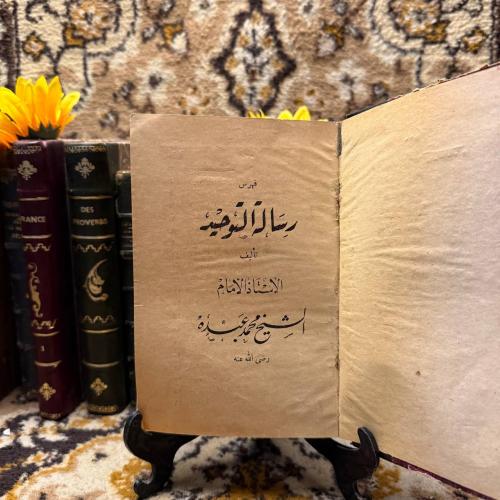 فهرس
رسالة التوحيد
تأليف
الأستاذ الإمام
الشيخ محمد عبده
رضى الله عنه
RANCE
1
DES
PROVERBS